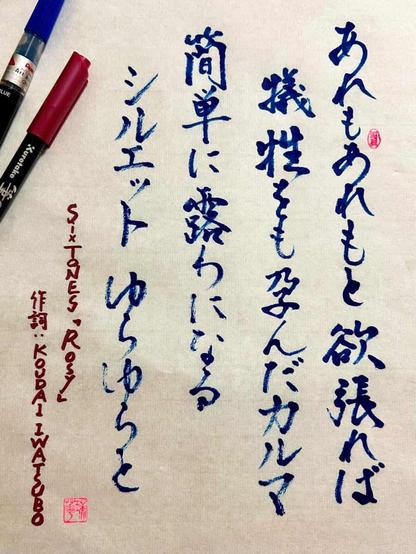 あれもあれもと欲張れば
犠牲をも孕んだカルマ
簡単に露わになる
シルエット ゆらゆらと
SixTONES「Rosy」
作詞:KOUDAI IWATSUBO
Kuretake